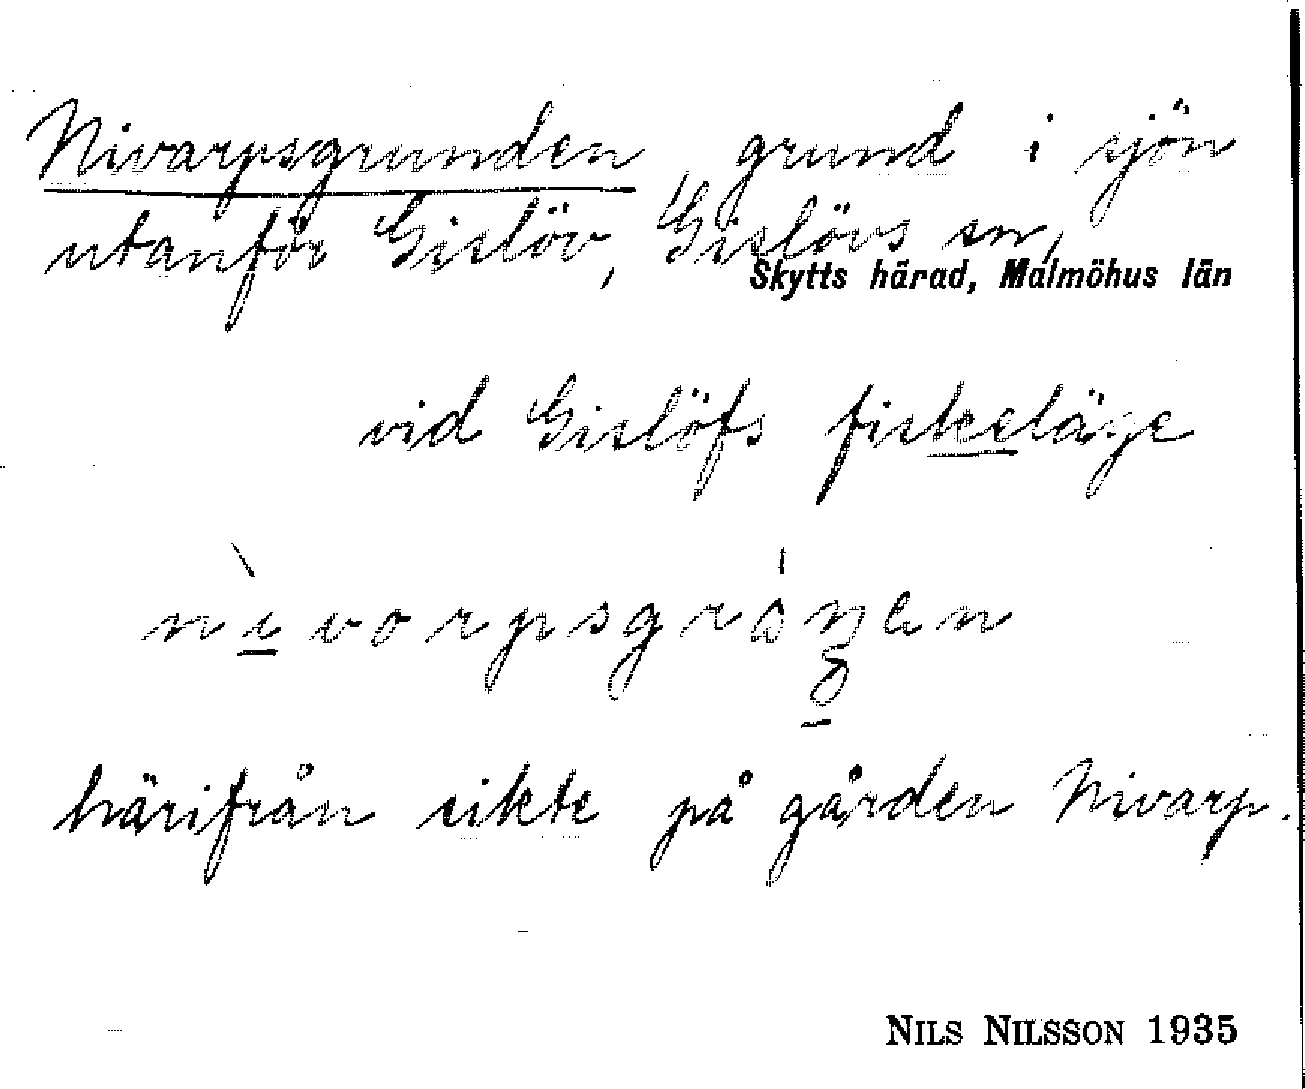 Nivarpsgrunden, grund i sjön
utanför Gislöv, Gislövs sn,
Skytts härad, Malmöhus län
vid Gislöfs fiskeläge
härifrån sikte på gården Nivarp.
NILS NILSSON 1935